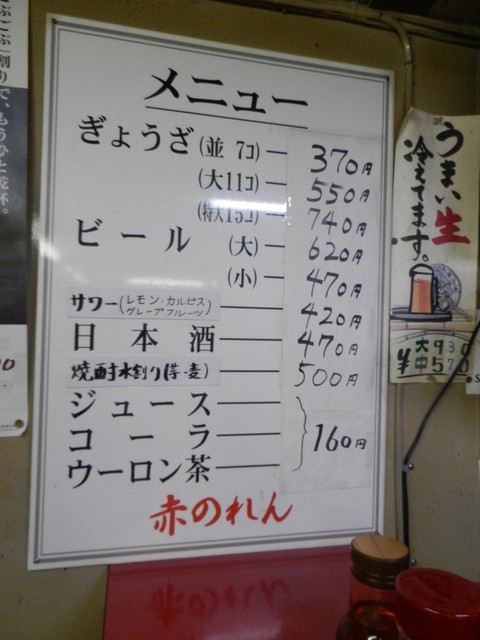 メニュー
ぎょうざ(並 7コ)― 370円
(大11コ)― 550円
(特大15コ) 740円
ビール (大)― 620円
(小)― 470円
サワー(レモン・カルピス
グレープフルーツ)― 420円
日本酒― 470円
焼酎水割り(芋・麦)― 500円
ジュース―
コーラ― 160円
ウーロン茶―
赤のれん
うまい生
冷えてます。
¥ 大930
中570
割り で、もうひと乾杯。